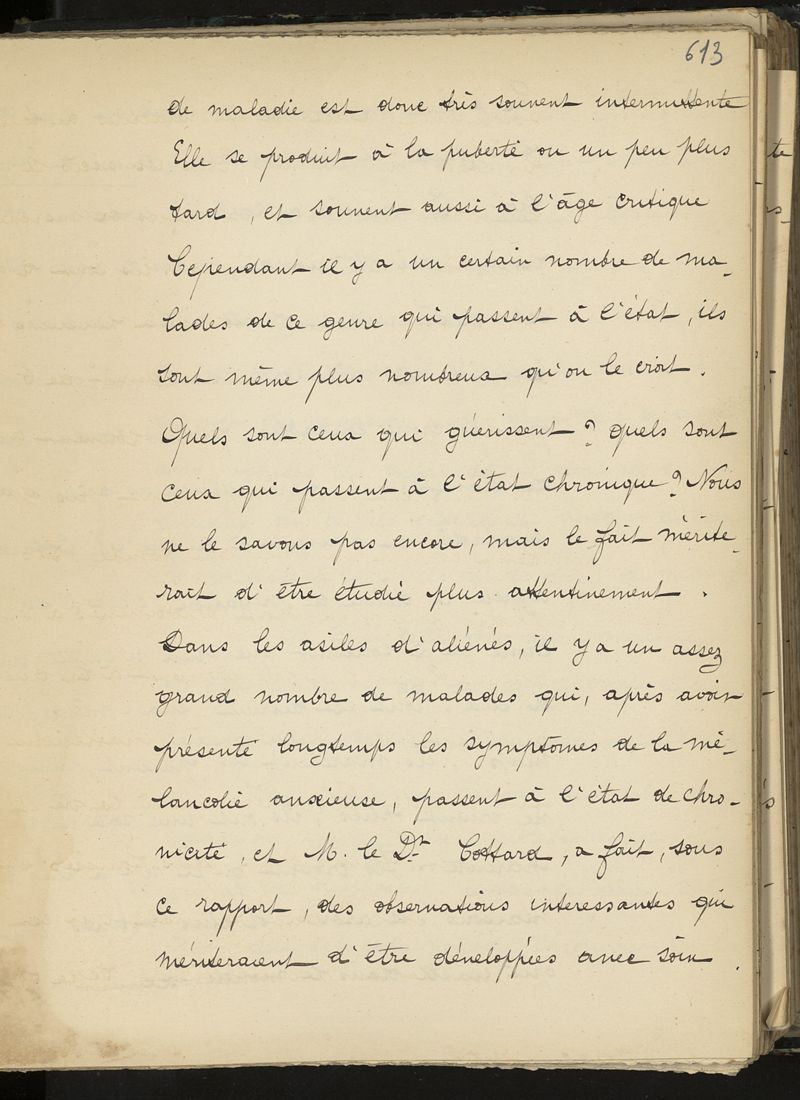 613
de maladie est donc très souvent intermittente
Elle se produit à la puberté ou un peu plus
tard , et souvent aussi à l'âge critique
Cependant il y a un certain nombre de ma-
lades de ce genre qui passent à l'état , ils
sont même plus nombreux qu'on le croit .
Quels sont ceux qui guérissent ? Quels sont
ceux qui passent à l'état chronique ? Nous
ne le savons pas encore, mais le fait mérite-
rait d'être étudié plus attentivement .
Dans les asiles d'aliénés, il y a un assez
grand nombre de malades qui, après avoir
présenté longtemps les symptomes de la mé-
lancolie anxieuse, passent à l'état de chro-
nicité , et M. le Dr Cottard, a fait, sous
ce rapport, des observations intéressantes qui
mériteraient d'être développées avec soin .
te
s-
s